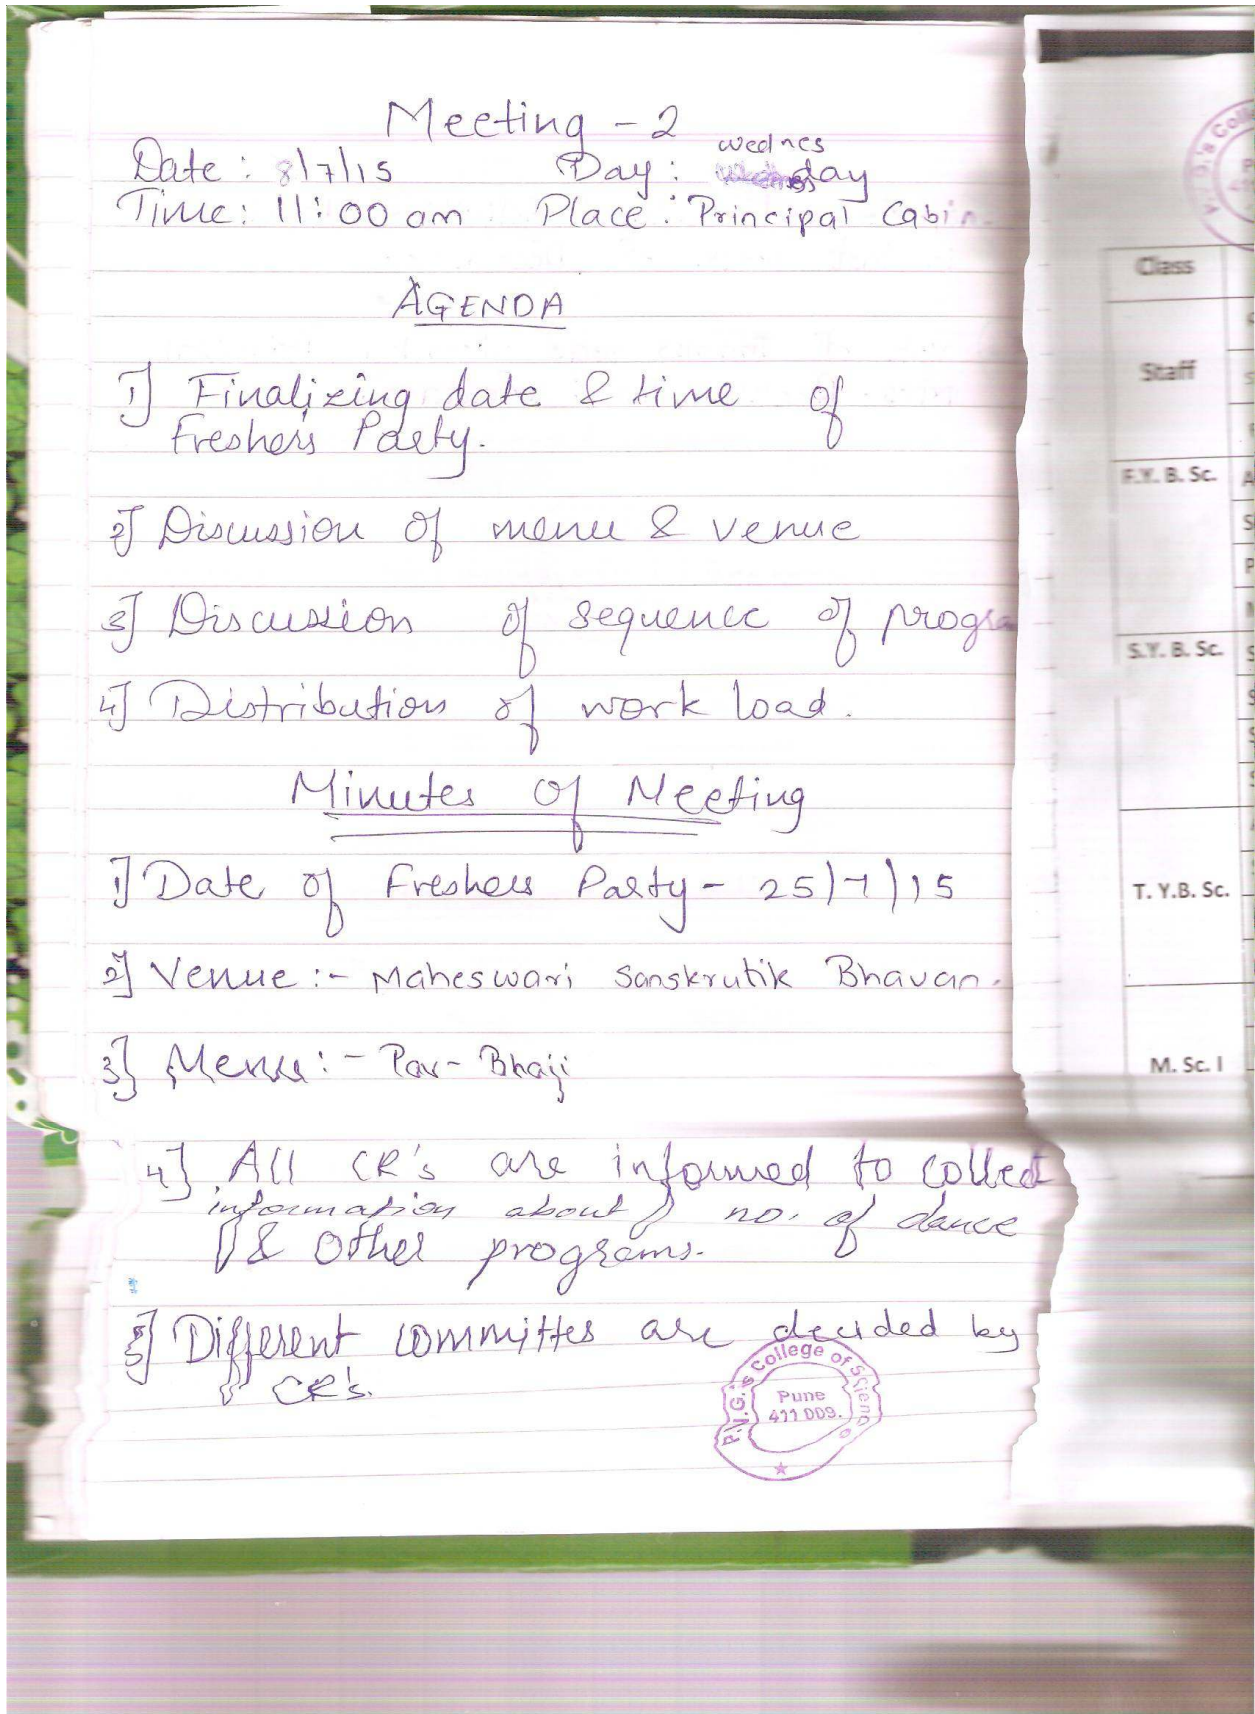 Meeting - 2
Date: 8/7/15 Day: wednesday
Time: 11:00 am Place: Principal Cabin.
AGENDA
1] Finalizing date & time of
Freshers Party.
2] Discussion of menu & venue
3] Discussion of sequence of progra
4] Distribution of work load.
Minutes of Meeting
1] Date of Freshers Party - 25/7/15
2] Venue :- Maheswari Sanskrutik Bhavan.
3] Menu :- Pav-Bhaji
4] All CR's are informed to collect
information about no. of dance
& other programs.
5] Different committes are decided by
CR's.
P.V.G.'s College of Science
Pune
411 009.
Class
Staff
F.Y. B. Sc.
S.Y. B. Sc.
T. Y.B. Sc.
M. Sc. I